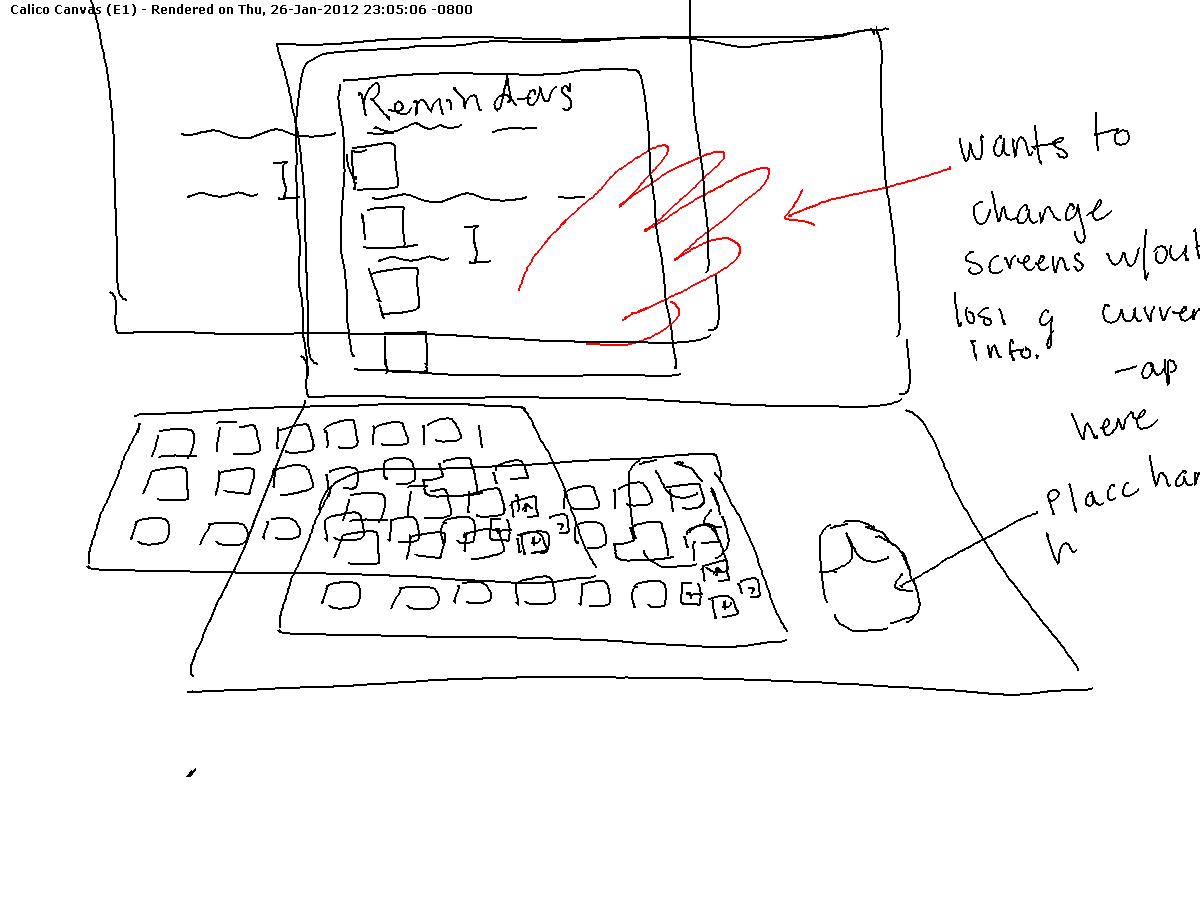 Calico Canvas (E1) - Rendered on Thu, 26-Jan-2012 23:05:06 -0800
Reminders
I
I
wants to
change
screens w/out
losi g curren
info.
-ap
here
Place han
h